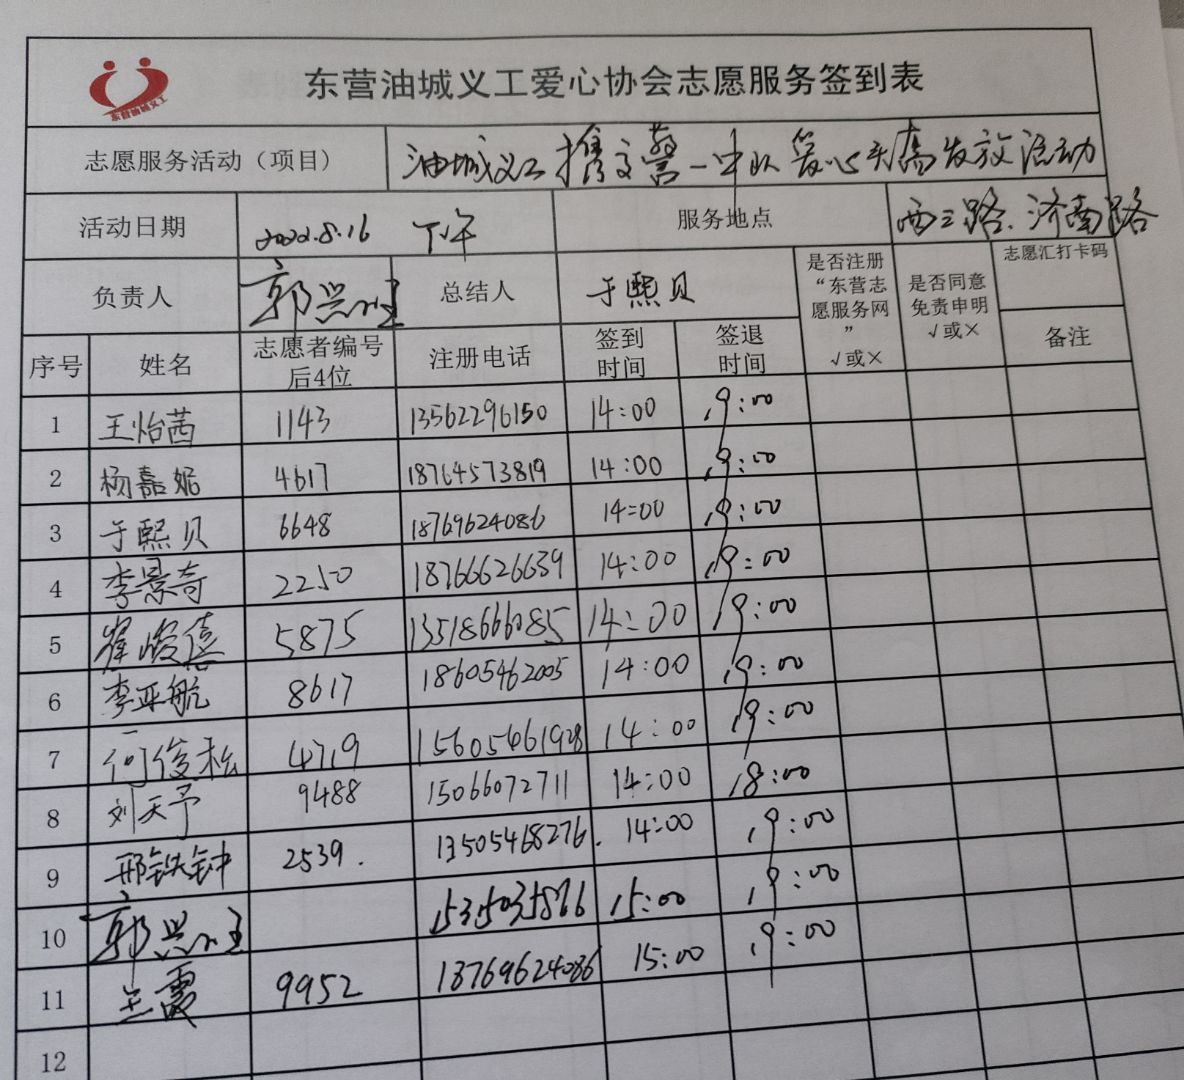 东营油城义工
东营油城义工爱心协会志愿服务签到表
志愿服务活动（项目） 油城义工携交警一中队爱心头盔发放活动
活动日期 2022.8.16 下午 服务地点 西三路、济南路
负责人 郭兴 总结人 于熙贝 是否注册“东营志愿服务网”√或× 是否同意免责申明√或× 志愿汇打卡码
序号 姓名 志愿者编号后4位 注册电话 签到时间 签退时间 备注
1 王怡茜 1143 13562296150 14:00 19:00
2 杨嘉妮 4617 18764573819 14:00 19:00
3 于熙贝 6648 18769624086 14:00 19:00
4 李景奇 2250 18766626639 14:00 19:00
5 崔峻僖 5875 13518666085 14:00 19:00
6 李亚航 8617 18605462005 14:00 19:00
7 何俊松 4719 15605461928 14:00 19:00
8 刘天予 9488 15066072711 14:00 18:00
9 邢铁钟 2539. 13505468276. 14:00 19:00
10 郭兴 15315035866 15:00 19:00
11 王霞 9952 18769624086 15:00 19:00
12